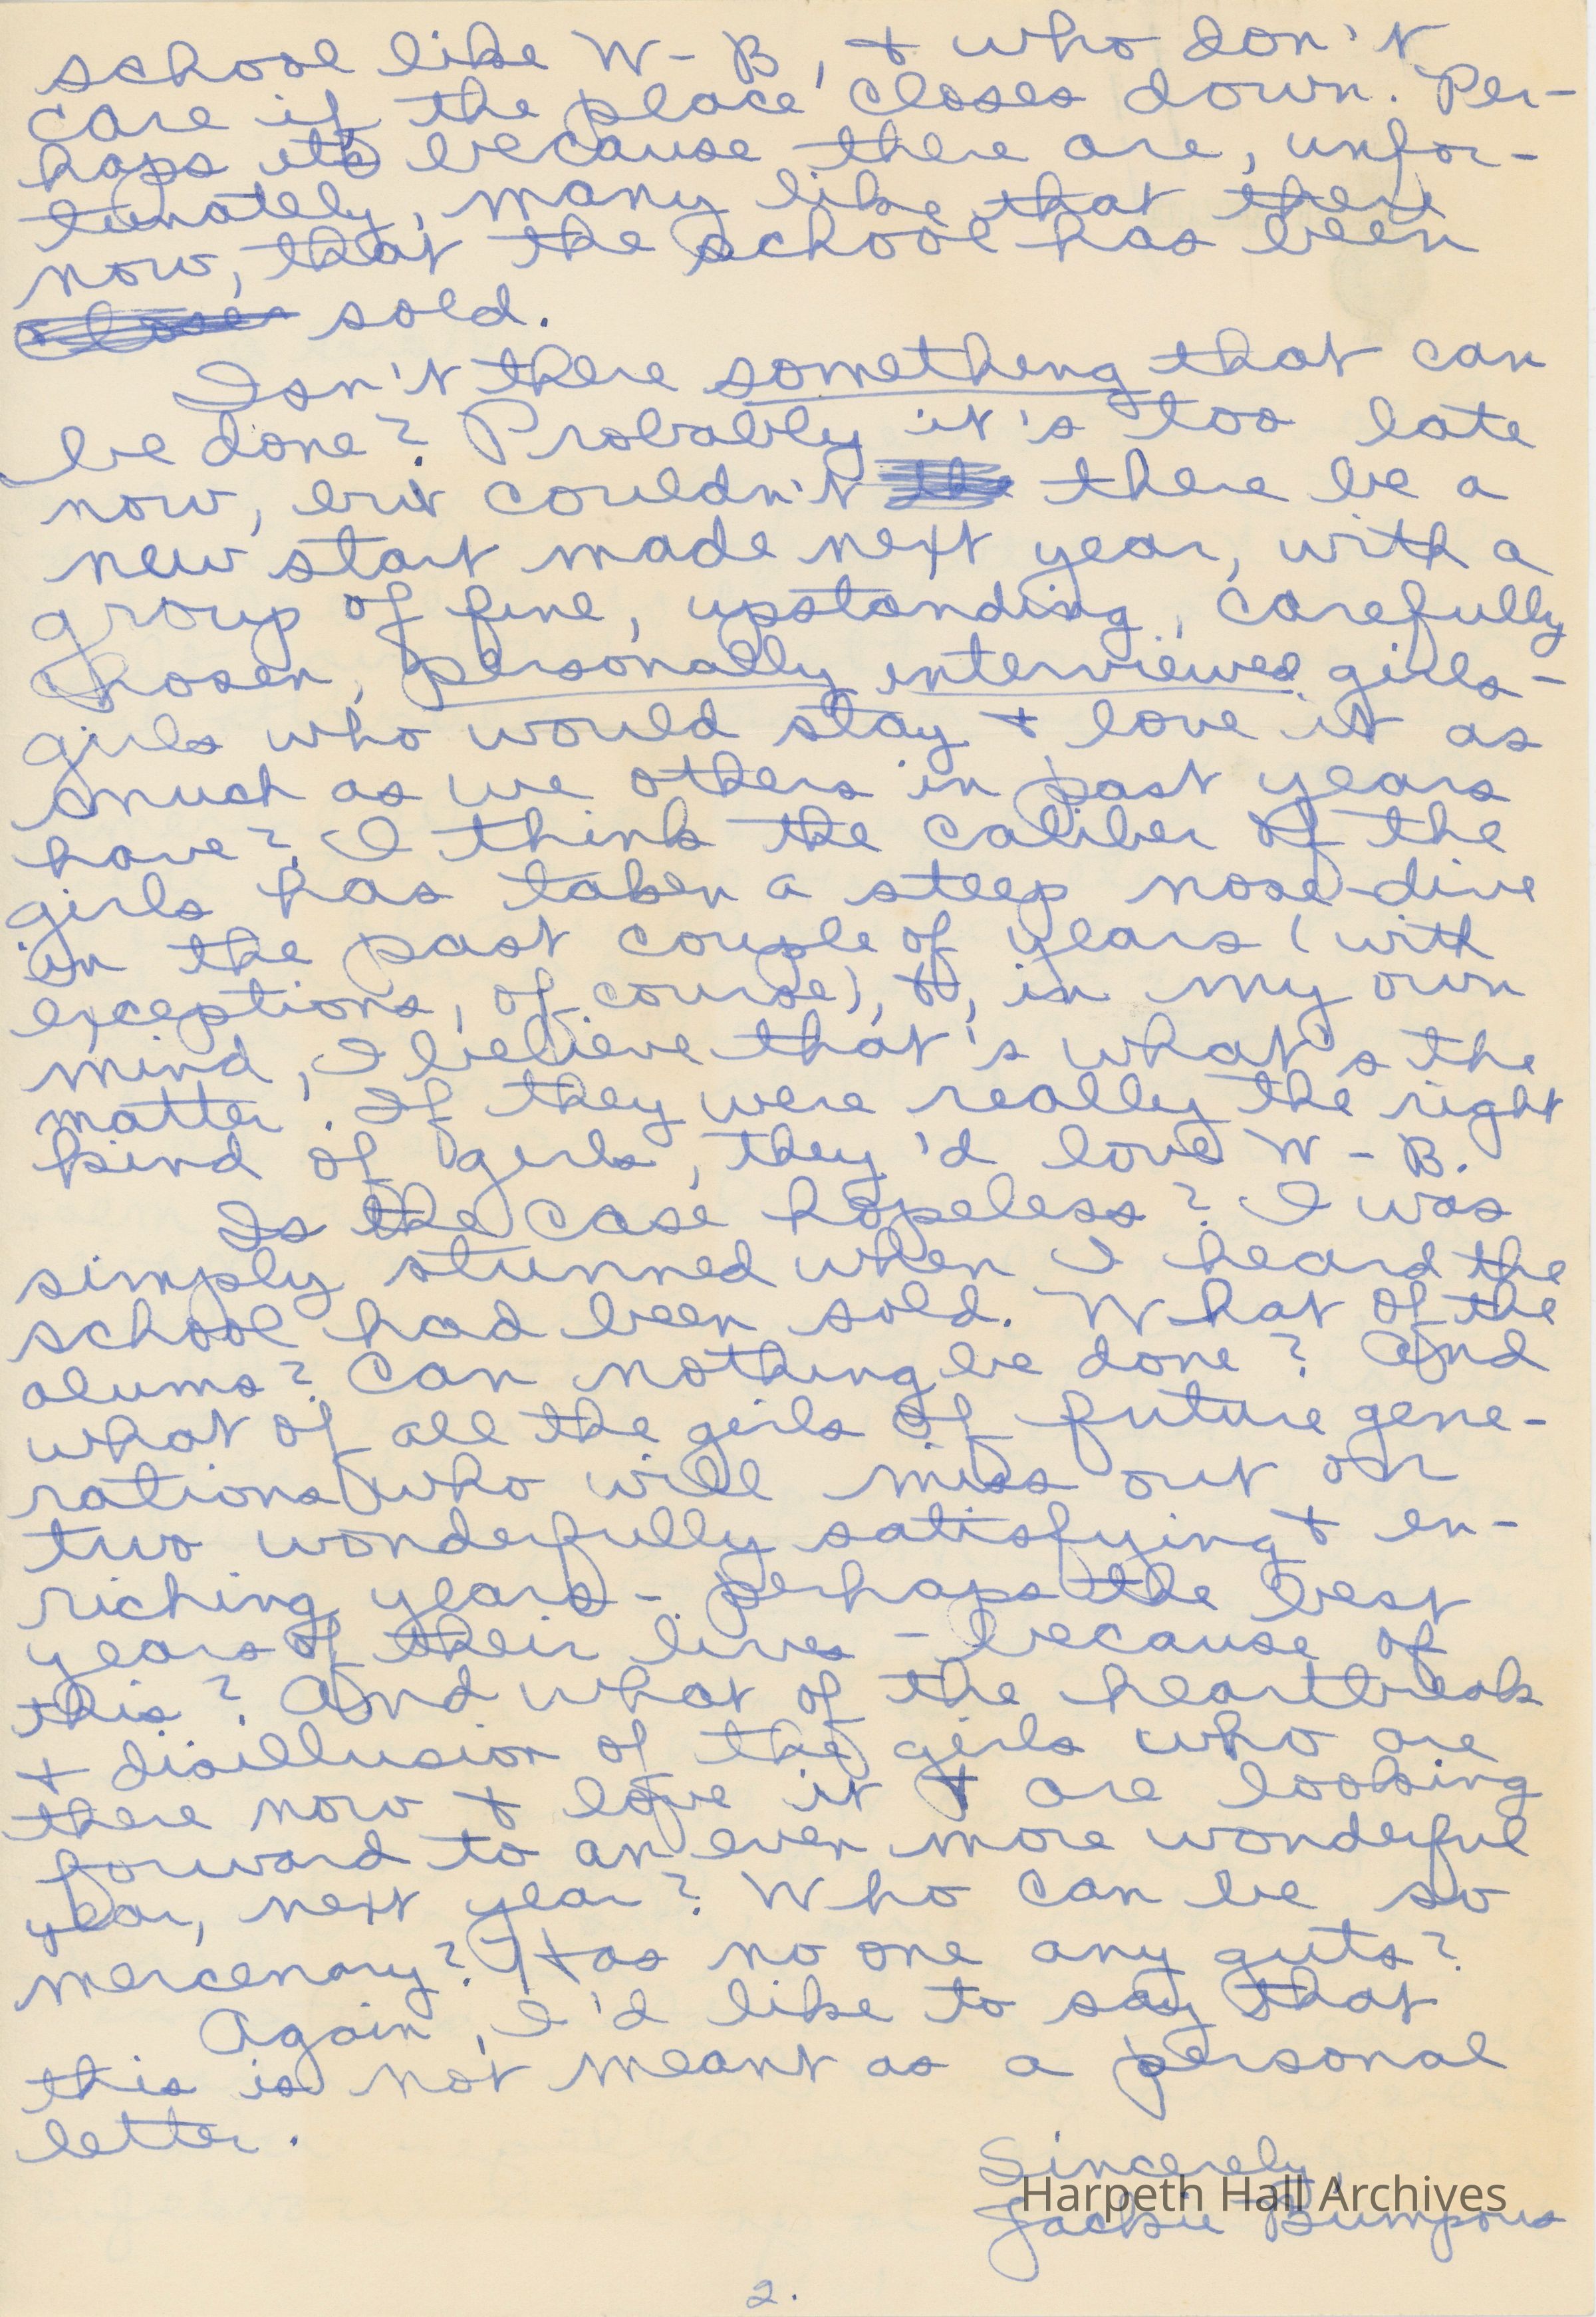 school like W-B, & who don't
care if the place closes down. Per-
haps it's because there are, unfor-
tunately, many like that there
now, that the school has been
sold.
Isn't there something that can
be done? Probably it's too late
now, but couldn't the there be a
new start made next year, with a
group of fine, upstanding, carefully
chosen, personally interviewed girls-
girls who would stay & love it as
much as we others in past years
have? I think the caliber of the
girls has taken a steep nose-dive
in the past couple of years (with
exceptions, of course), &, in my own
mind, I believe that's what's the
matter. If they were really the right
kind of girls, they'd love W-B.
Is the case hopeless? I was
simply stunned when I heard the
school had been sold. What of the
alums? Can nothing be done? And
what of all the girls of future gene-
rations who will miss out on
two wonderfully satisfying & en-
riching years - perhaps the best
years of their lives - because of
this? And what of the heartbreak
& disillusion of the girls who are
there now & love it & are looking
forward to an even more wonderful
year, next year? Who can be so
mercenary? Has no one any guts?
Again, I'd like to say that
this is not meant as a personal
letter.
Sincerely,
Jackie Bumpous
Harpeth Hall Archives
2.